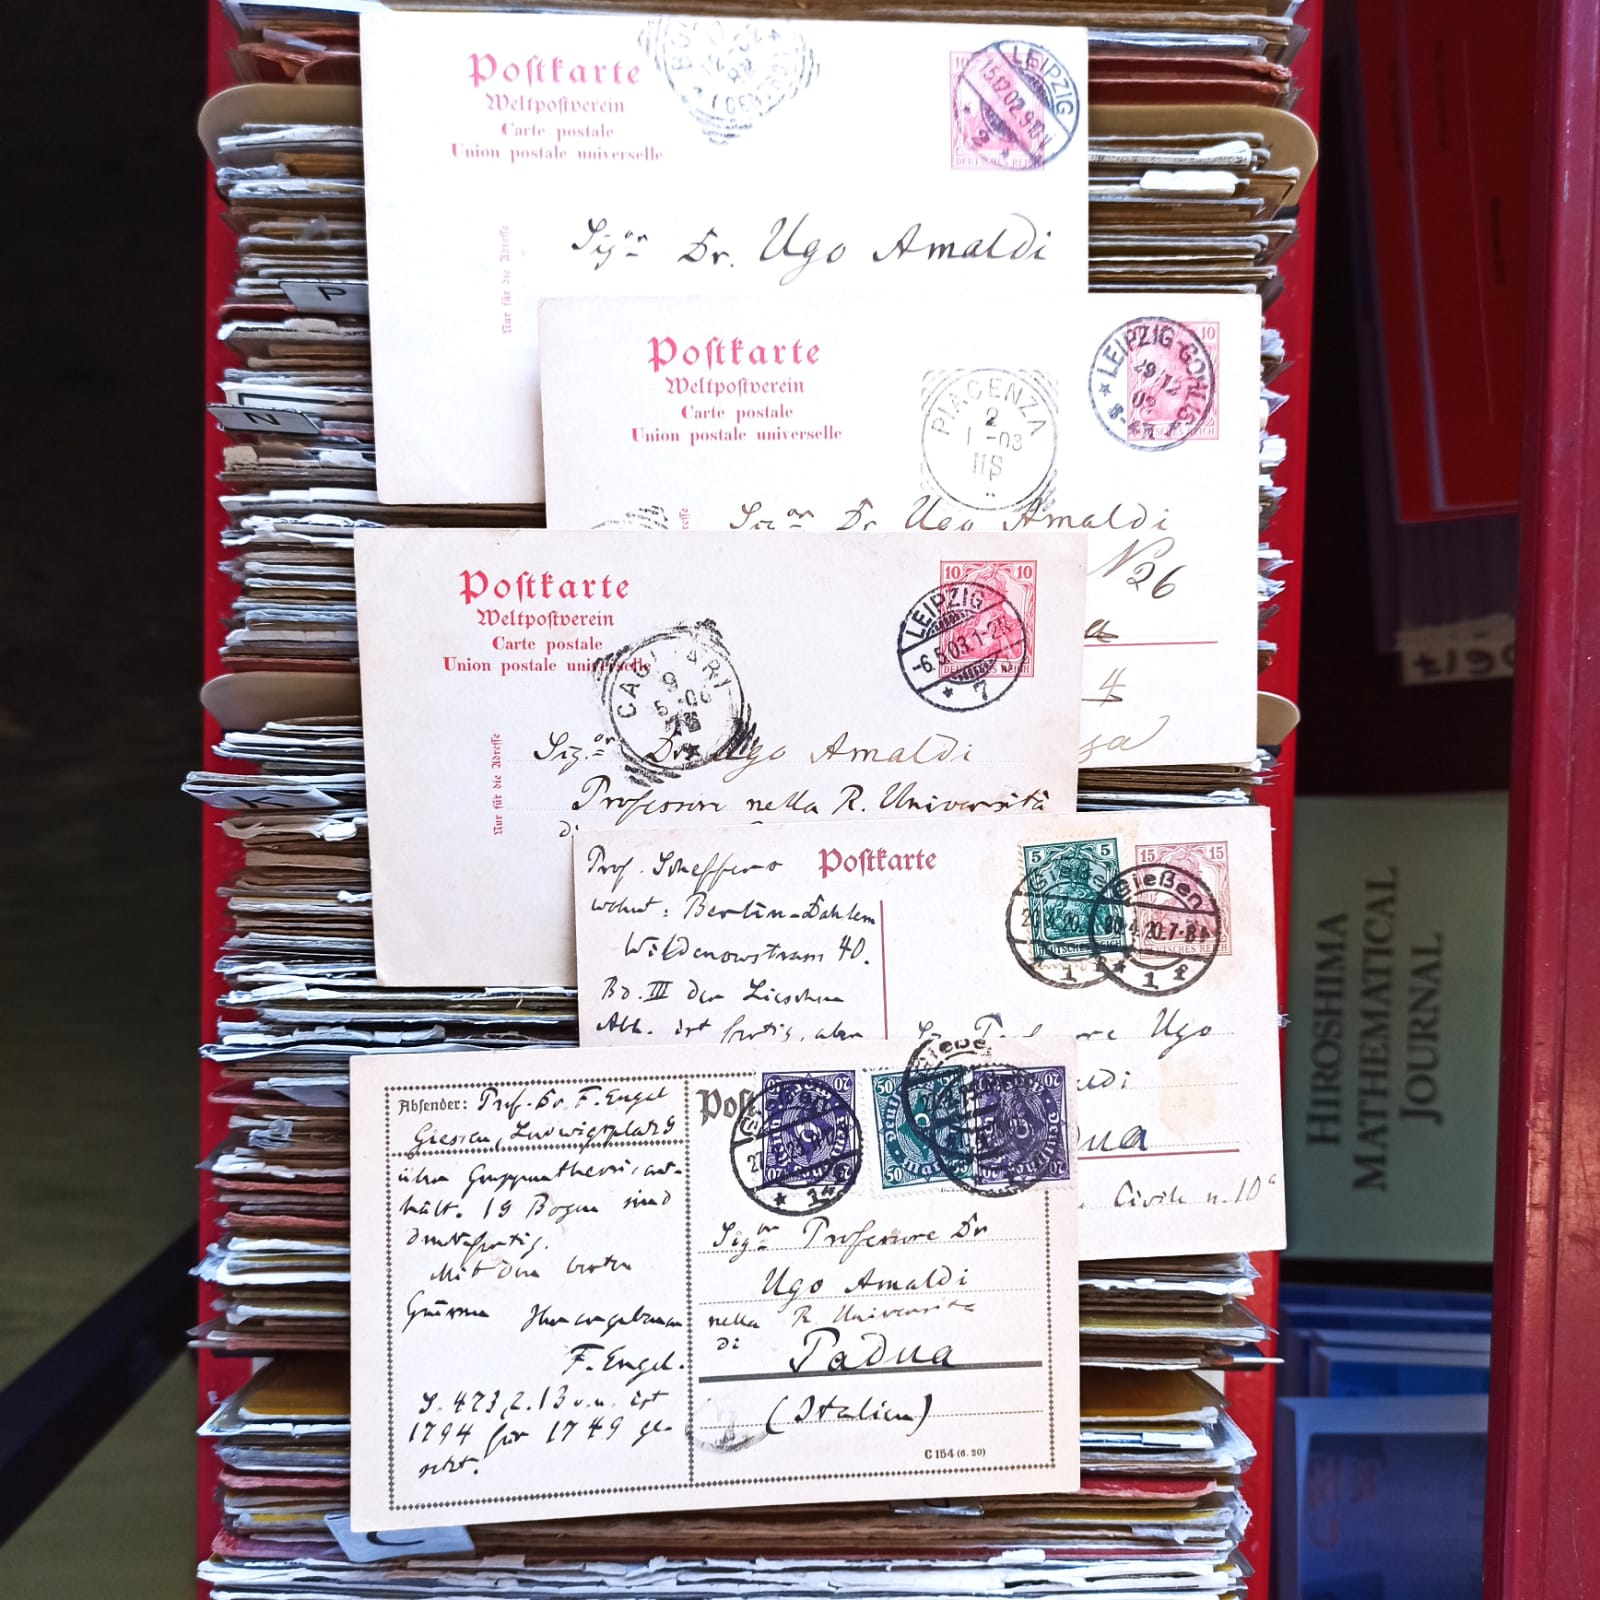 Postkarte
Weltpostverein
Carte postale
Union postale universelle
10
LEIPZIG
15.12.02.
2
DEUTSCHES REICH
Nur für die Adresse
Sigor Dr. Ugo Amaldi
Postkarte
Weltpostverein
Carte postale
Union postale universelle
PIACENZA
2
1 -03
11 S
10
LEIPZIG-GOHLIS
29 12
02
Sigor Dr. Ugo Amaldi
No 26
4
Postkarte
Weltpostverein
Carte postale
Union postale universelle
CAGLIARI
9
5 -03
10 10
LEIPZIG
-6.5.03.1-2N
7
DEUTSCHES REICH
Nur für die Adresse
Sigor Dr. Ugo Amaldi
Professore nella R. Università
di
Prof. Scheffers
wohnt: Berlin-Dahlem
Wildenowstrasse 40.
Bd. III der Lieschen
Abh. ist fertig, aber
Postkarte
5 5
15 15
Gießen
20.4.20.7-8
1
DEUTSCHES REICH
Ugo
Civile n. 10
Absender: Prof. Dr F. Engel
Giessen, Ludwigsplatz 9
über Gruppentheorie, ent-
hält. 19 Bogen sind
druckfertig.
Mit den besten
Grüssen Ihr ergebener
F. Engel.
S. 473, Z. 13 v. u. ist
1794 für 1749 ge-
setzt.
20
50 50
20
Sigor Professore Dr
Ugo Amaldi
nella R. Università
di Padua
(Italien)
C 154 (6. 20)
P
N
K
C
HIROSHIMA
MATHEMATICAL
JOURNAL